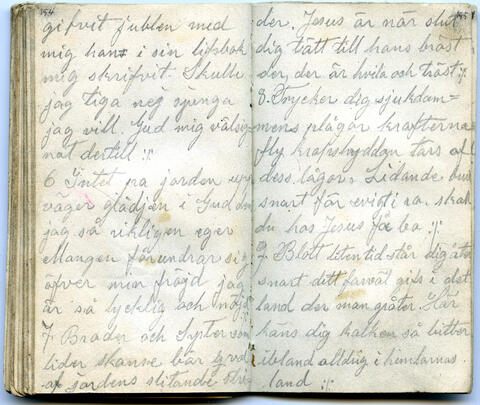 154
gifvit jublen med
mig han i sin lifsbok
mig skrifvit. Skulle
jag tiga nej sjunga
jag vill. Gud mig välsig
nat dertill :/:
6 Intet på jorden upp
väger glädjen i Gud om
jag så rikligen eger
Mangen förundrar sig
öfver min fröjd jag
är så lycklig och nöjd
7 Broder och Syster som
lider kanske bär
af jordens slitande
155
der. Jesus är när slut
dig tätt till hans bröst
der, der är hvila och tröst :/:
8. Trycker dig sjukdom=
mens plågor krafterna
fly kropshyddan tärs af
dess lågor. Lidande
snart för evigt skall
du hos Jesus få bo :/:
9. Blott liten tid står dig åter
snart ditt farväl gifs i det
land der man gråter. Här
käns dig kalken så bitter
ibland alldrig i himlarnas
land :/: